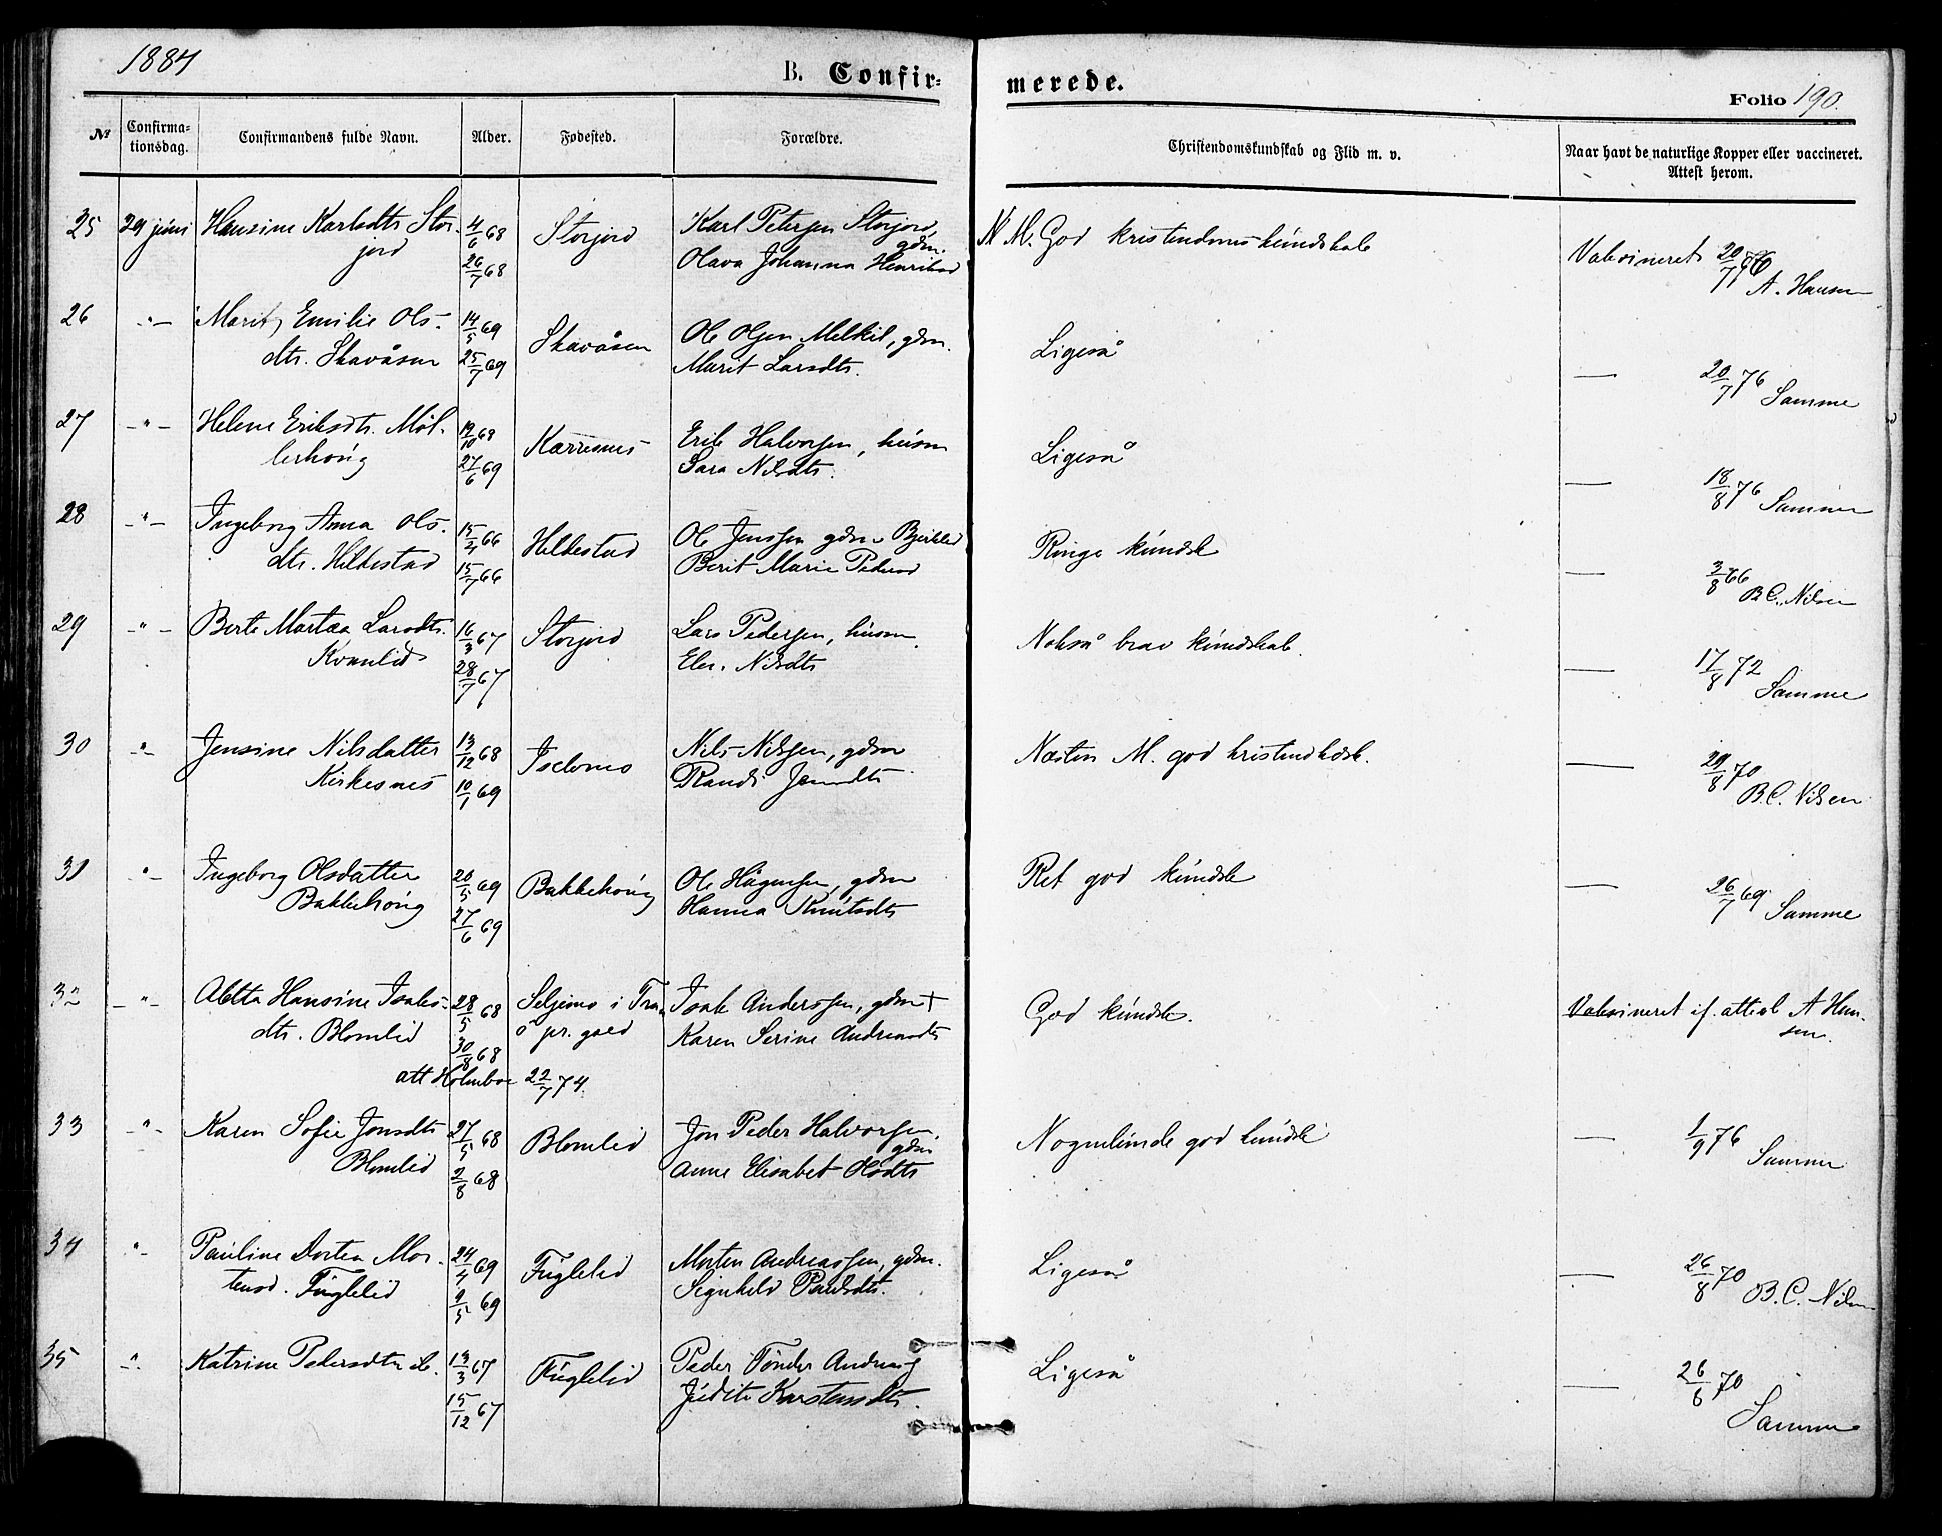 1884
B. Confir=
merede.
Folio 190.
№
Confirma-
tionsdag.
Confirmandens fulde Navn.
Alder.
Fødested.
Forældre.
Christendomskundskab og Flid m. v.
Naar havt de naturlige Kopper eller vaccineret.
Attest herom.
25 29 juni Hansine Karlsdtr Stor-
jord
4/6 68
26/7 68
Storjord
Karl Petersen Storjord,
gdm.
Olava Johanna Henriksd
M. God kristendomskundskab
Vaksineret 20/7 76
A. Hansen
26 -"- Marit Emilie Ols-
dtr. Skavåsen
14/5 69
25/7 69
Skavåsen
Ole Olsen Melkil, gdm.
Marit Larsdtr.
Ligeså
— 20/7 76 Samme
27 -"- Helene Eriksdtr. Möl-
lerhoug
19/10 68
27/6 69
Karresnes
Erik Halvorsen, husm
Sara Nilsdtr.
Ligeså
— 18/8 76 Samme
28 -"- Ingeborg Anna Ols-
dtr. Hildestad
15/4 66
15/7 66
Hildestad
Ole Jenssen gdm
Berit Marie Pedersd
Ringe kundsk
— 3/8 66
B.C. Nilsen
29 -"- Berte Martea Larsdtr.
Kvanlid
16/3 67
28/7 67
Storjord
Lars Pedersen, husm.
Elen Nilsdtr
Nokså brav kundskab.
— 17/8 72
Samme
30 -"- Jensine Nilsdatter
Kirkesnes
13/12 68
10/1 69
Iselvmo
Nils Nilsen, gdm
Randi Jensdtr
Næsten M. god kristendkdsk.
— 29/8 70
B.C. Nilsen
31 -"- Ingeborg Olsdatter
Bakkehoug
20/5 69
27/6 69
Bakkehoug
Ole Hågensen, gdm
Hanna Knutsdtr
Ret god kundsk
— 26/7 69 Samme
32 -"- Aletta Hansine Isaks-
dtr. Blomlid
28/5 68
30/8 68
Seljemo i Tran-
ö pr. gjeld
Isak Anderssen, gdm +
Karen Serine Andreasdtr
God kundsk.
Vaksineret if. attest A Han-
sen.
att Holmboe 22/7 74.
33 -"- Karen Sofie Jonsdtr
Blomlid
27/5 68
2/8 68
Blomlid
Jon Peder Halvorsen,
gdm
Anne Elisabet Olsdtr
Nogenlunde god kundsk
— 1/9 76
Samme
34 -"- Pauline Dortea Mor-
tensd. Fuglelid
24/4 69
9/5 69
Fuglelid
Morten Andreassen, gdm.
Signhild Paulsdtr.
Ligeså
— 26/8 70
B.C. Nilsen
35 -"- Katrine Pedersdtr ib.
13/3 67
15/12 67
Fuglelid
Peder Tönder Andreas
Judite Karstensdtr.
Ligeså
— 26/8 70
Samme